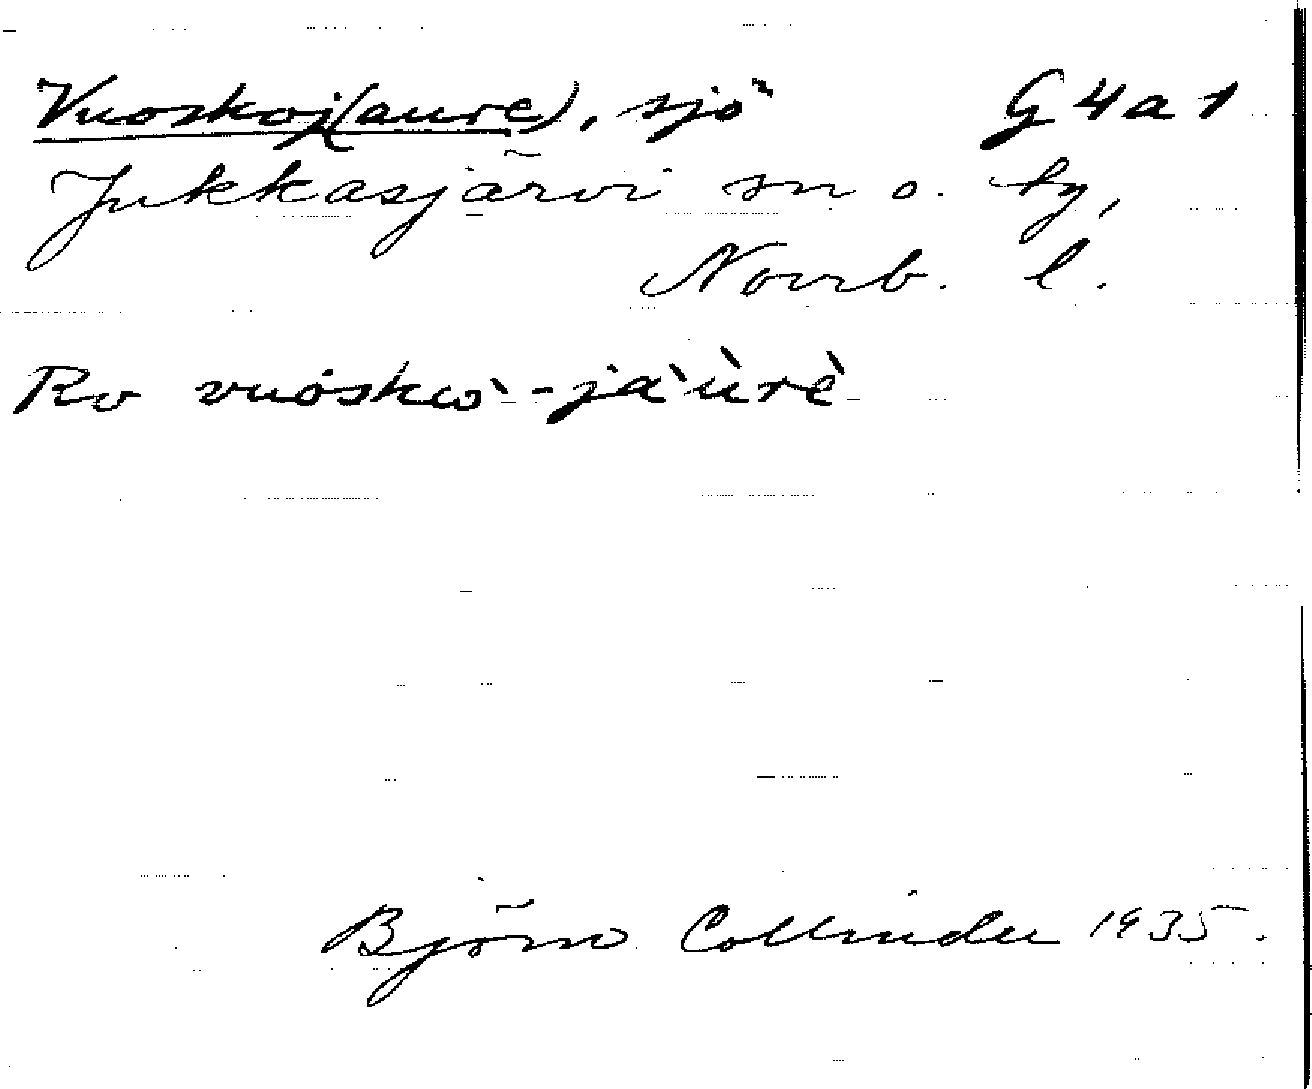 Vuoskoj(aure), sjö G4a1
Jukkasjärvi sn o. tg,
Norrb. l.
Rv vuóskò̩-jà̀ùrè
Björn Collinder 1935.